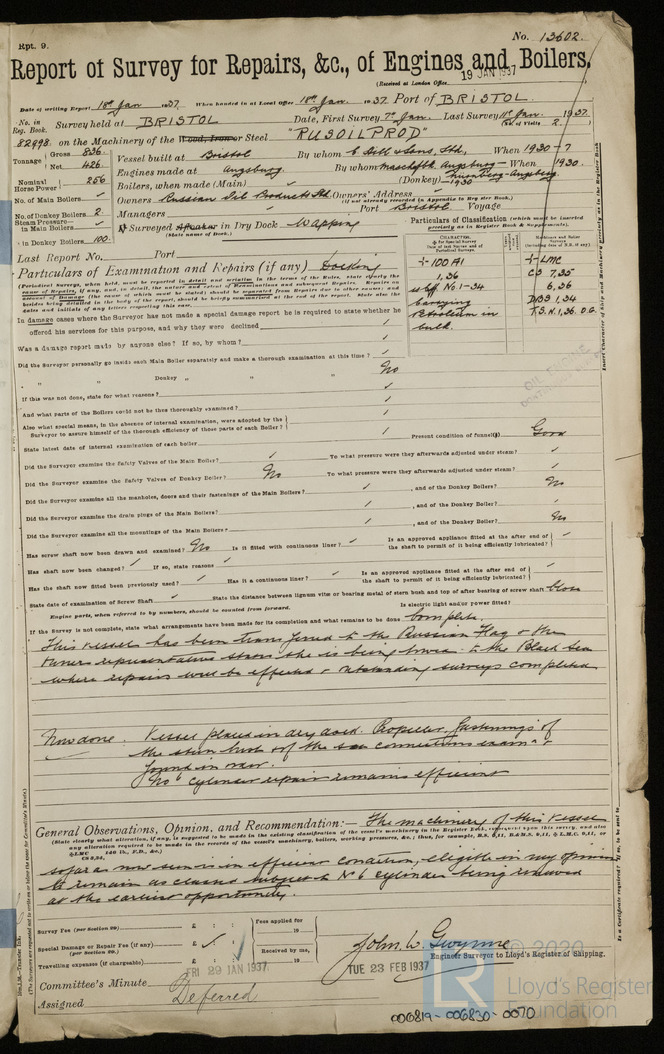 Rpt. 9.
No. 13602.
Report of Survey for Repairs, &c., of Engines and Boilers.
(Received at London Office 19 JAN 1937
Date of writing Report 18th Jan 1937. When handed in at Local Office 18th Jan 1937. Port of BRISTOL.
No. in Reg. Book. Survey held at BRISTOL Date, First Survey Jan. Last Survey Jan. 1937.
(No. of Visits 2.)
82998. on the Machinery of the Wood, Iron or Steel "RUSOILPROD"
Tonnage Gross 836.
Net 426.
Vessel built at Bristol By whom C. Hill & Sons, Ltd., When 1930-7
Engines made at Augsburg. By whom Maschfbk Augsburg- When 1930.
Nominal Horse Power 256
Boilers, when made (Main) (Donkey) 1930 Nurnberg-Augsburg
No. of Main Boilers
Owners Russian Oil Products Ltd. Owners' Address
(if not already recorded in Appendix to Reg. Book.)
No. of Donkey Boilers 2.
Managers Port Bristol Voyage
Steam Pressure—
in Main Boilers
in Donkey Boilers 100.
If Surveyed Afloat or in Dry Dock Wapping
(State name of Dock.)
Particulars of Classification (which must be inserted precisely as in Register Book & Supplements).
+100A1
1,36
Carrying
Petroleum in
bulk.
+LMC
CS 7,35
6,36
DBS 1,34
T.S.N. 1,36. O.G.
Last Report No. Port
Particulars of Examination and Repairs (if any) Docking
In damage cases where the Surveyor has not made a special damage report he is required to state whether he
offered his services for this purpose, and why they were declined
Was a damage report made by anyone else? If so, by whom?
Did the Surveyor personally go inside each Main Boiler separately and make a thorough examination at this time?
" " Donkey " " " No
If this was not done, state for what reasons?
And what parts of the Boilers could not be thus thoroughly examined?
Also what special means, in the absence of internal examination, were adopted by the
Surveyor to assure himself of the thorough efficiency of those parts of each Boiler?
State latest date of internal examination of each boiler Present condition of funnel(s) Good
Did the Surveyor examine the Safety Valves of the Main Boiler? To what pressure were they afterwards adjusted under steam?
Did the Surveyor examine the Safety Valves of Donkey Boiler? No To what pressure were they afterwards adjusted under steam?
Did the Surveyor examine all the manholes, doors and their fastenings of the Main Boilers? , and of the Donkey Boilers? No
Did the Surveyor examine the drain plugs of the Main Boilers? , and of the Donkey Boilers?
Did the Surveyor examine all the mountings of the Main Boilers? , and of the Donkey Boilers? No
Has screw shaft now been drawn and examined? No Is it fitted with continuous liner? Is an approved appliance fitted at the after end of the shaft to permit of it being efficiently lubricated?
Has shaft now been changed? If so, state reasons
Has the shaft now fitted been previously used? Has it a continuous liner? Is an approved appliance fitted at the after end of the shaft to permit of it being efficiently lubricated?
State date of examination of Screw Shaft State the distance between lignum vitæ or bearing metal of stern bush and top of after bearing of screw shaft close
Engine parts, when referred to by numbers, should be counted from forward. Is electric light and/or power fitted?
If the Survey is not complete, state what arrangements have been made for its completion and what remains to be done Complete.
This vessel has been transferred to the Russian Flag & the
Owners representative states she is being towed to the Black Sea
where repairs will be effected & outstanding surveys completed
Now done. Vessel placed in dry dock. Propeller, fastenings of
the stern bush & of the sea connections exam &
found in order.
No 6 cylinder repair remains efficient
General Observations, Opinion, and Recommendation:— The machinery of this vessel
so far as now seen is in efficient condition, eligible in my opinion
to remain as classed subject to No 6 cylinder being renewed
at the earliest opportunity.
Survey Fee (per Section 29) £
Special Damage or Repair Fee (if any) £
(per Section 29.)
Travelling expenses (if chargeable) £
Fees applied for
19
Received by me,
19
John W. Gwynne
Engineer Surveyor to Lloyd's Register of Shipping.
Committee's Minute FRI 29 JAN 1937 TUE 23 FEB 1937
Assigned Deferred
© 2020
Lloyd's Register
Foundation
LR
006819-006830-0070